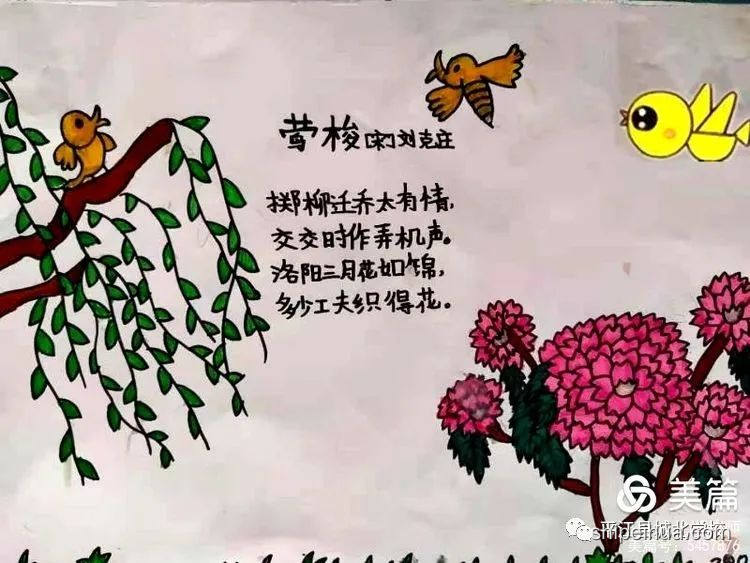 莺梭 [宋]刘克庄
掷柳迁乔太有情,
交交时作弄机声。
洛阳三月花如锦,
多少工夫织得花。
美篇
美篇号:5457876